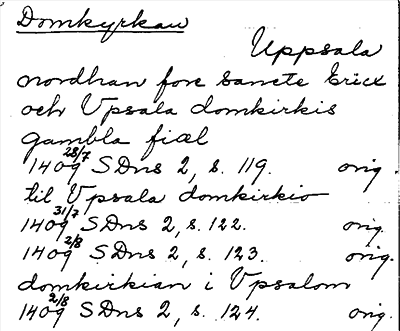 Domkyrkan
Uppsala
nordhan fore Sancte Ericx
och Vpsala domkirkis
gambla fiæl
1409 28/7 SDns 2, s. 119. orig.
til Vpsala domkirkio
1409 31/7 SDns 2, s. 122. orig.
1409 2/8 SDns 2, s. 123. orig.
domkirkian i Vpsalom
1409 2/8 SDns 2, s. 124. orig.